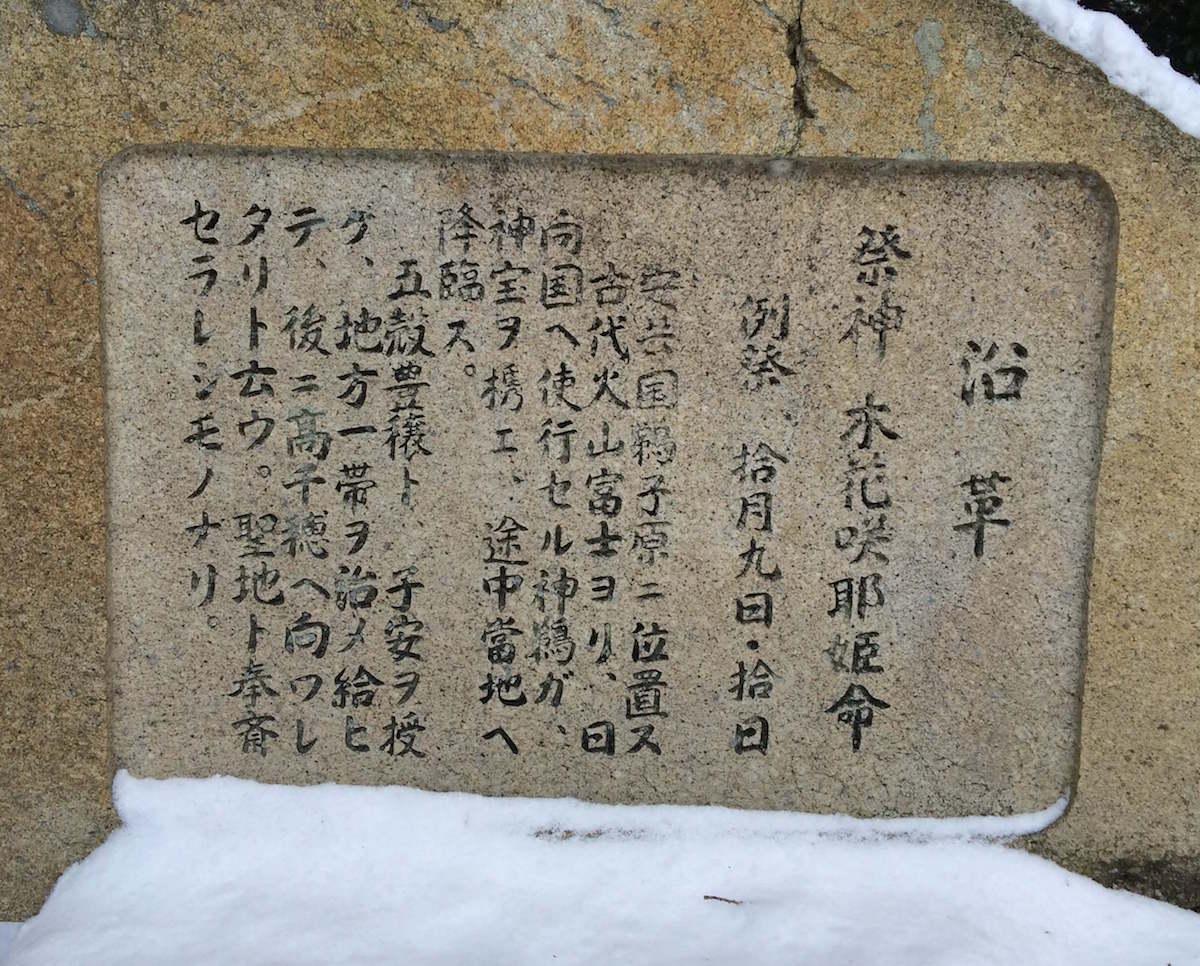 沿革
祭神 木花咲耶姫命
例祭、拾月九日・拾日
安芸国鵜子原ニ位置ス
古代火山富士ヨリ、日
向国ヘ使行セル神鵜ガ、
神宝ヲ携エ、途中當地ヘ
降臨ス。
五穀豊穣ト、子安ヲ授
ゲ、地方一帯ヲ治メ給ヒ
テ、後ニ高千穂ヘ向ワレ
タリト云ウ。聖地ト奉斎
セラレシモノナリ。